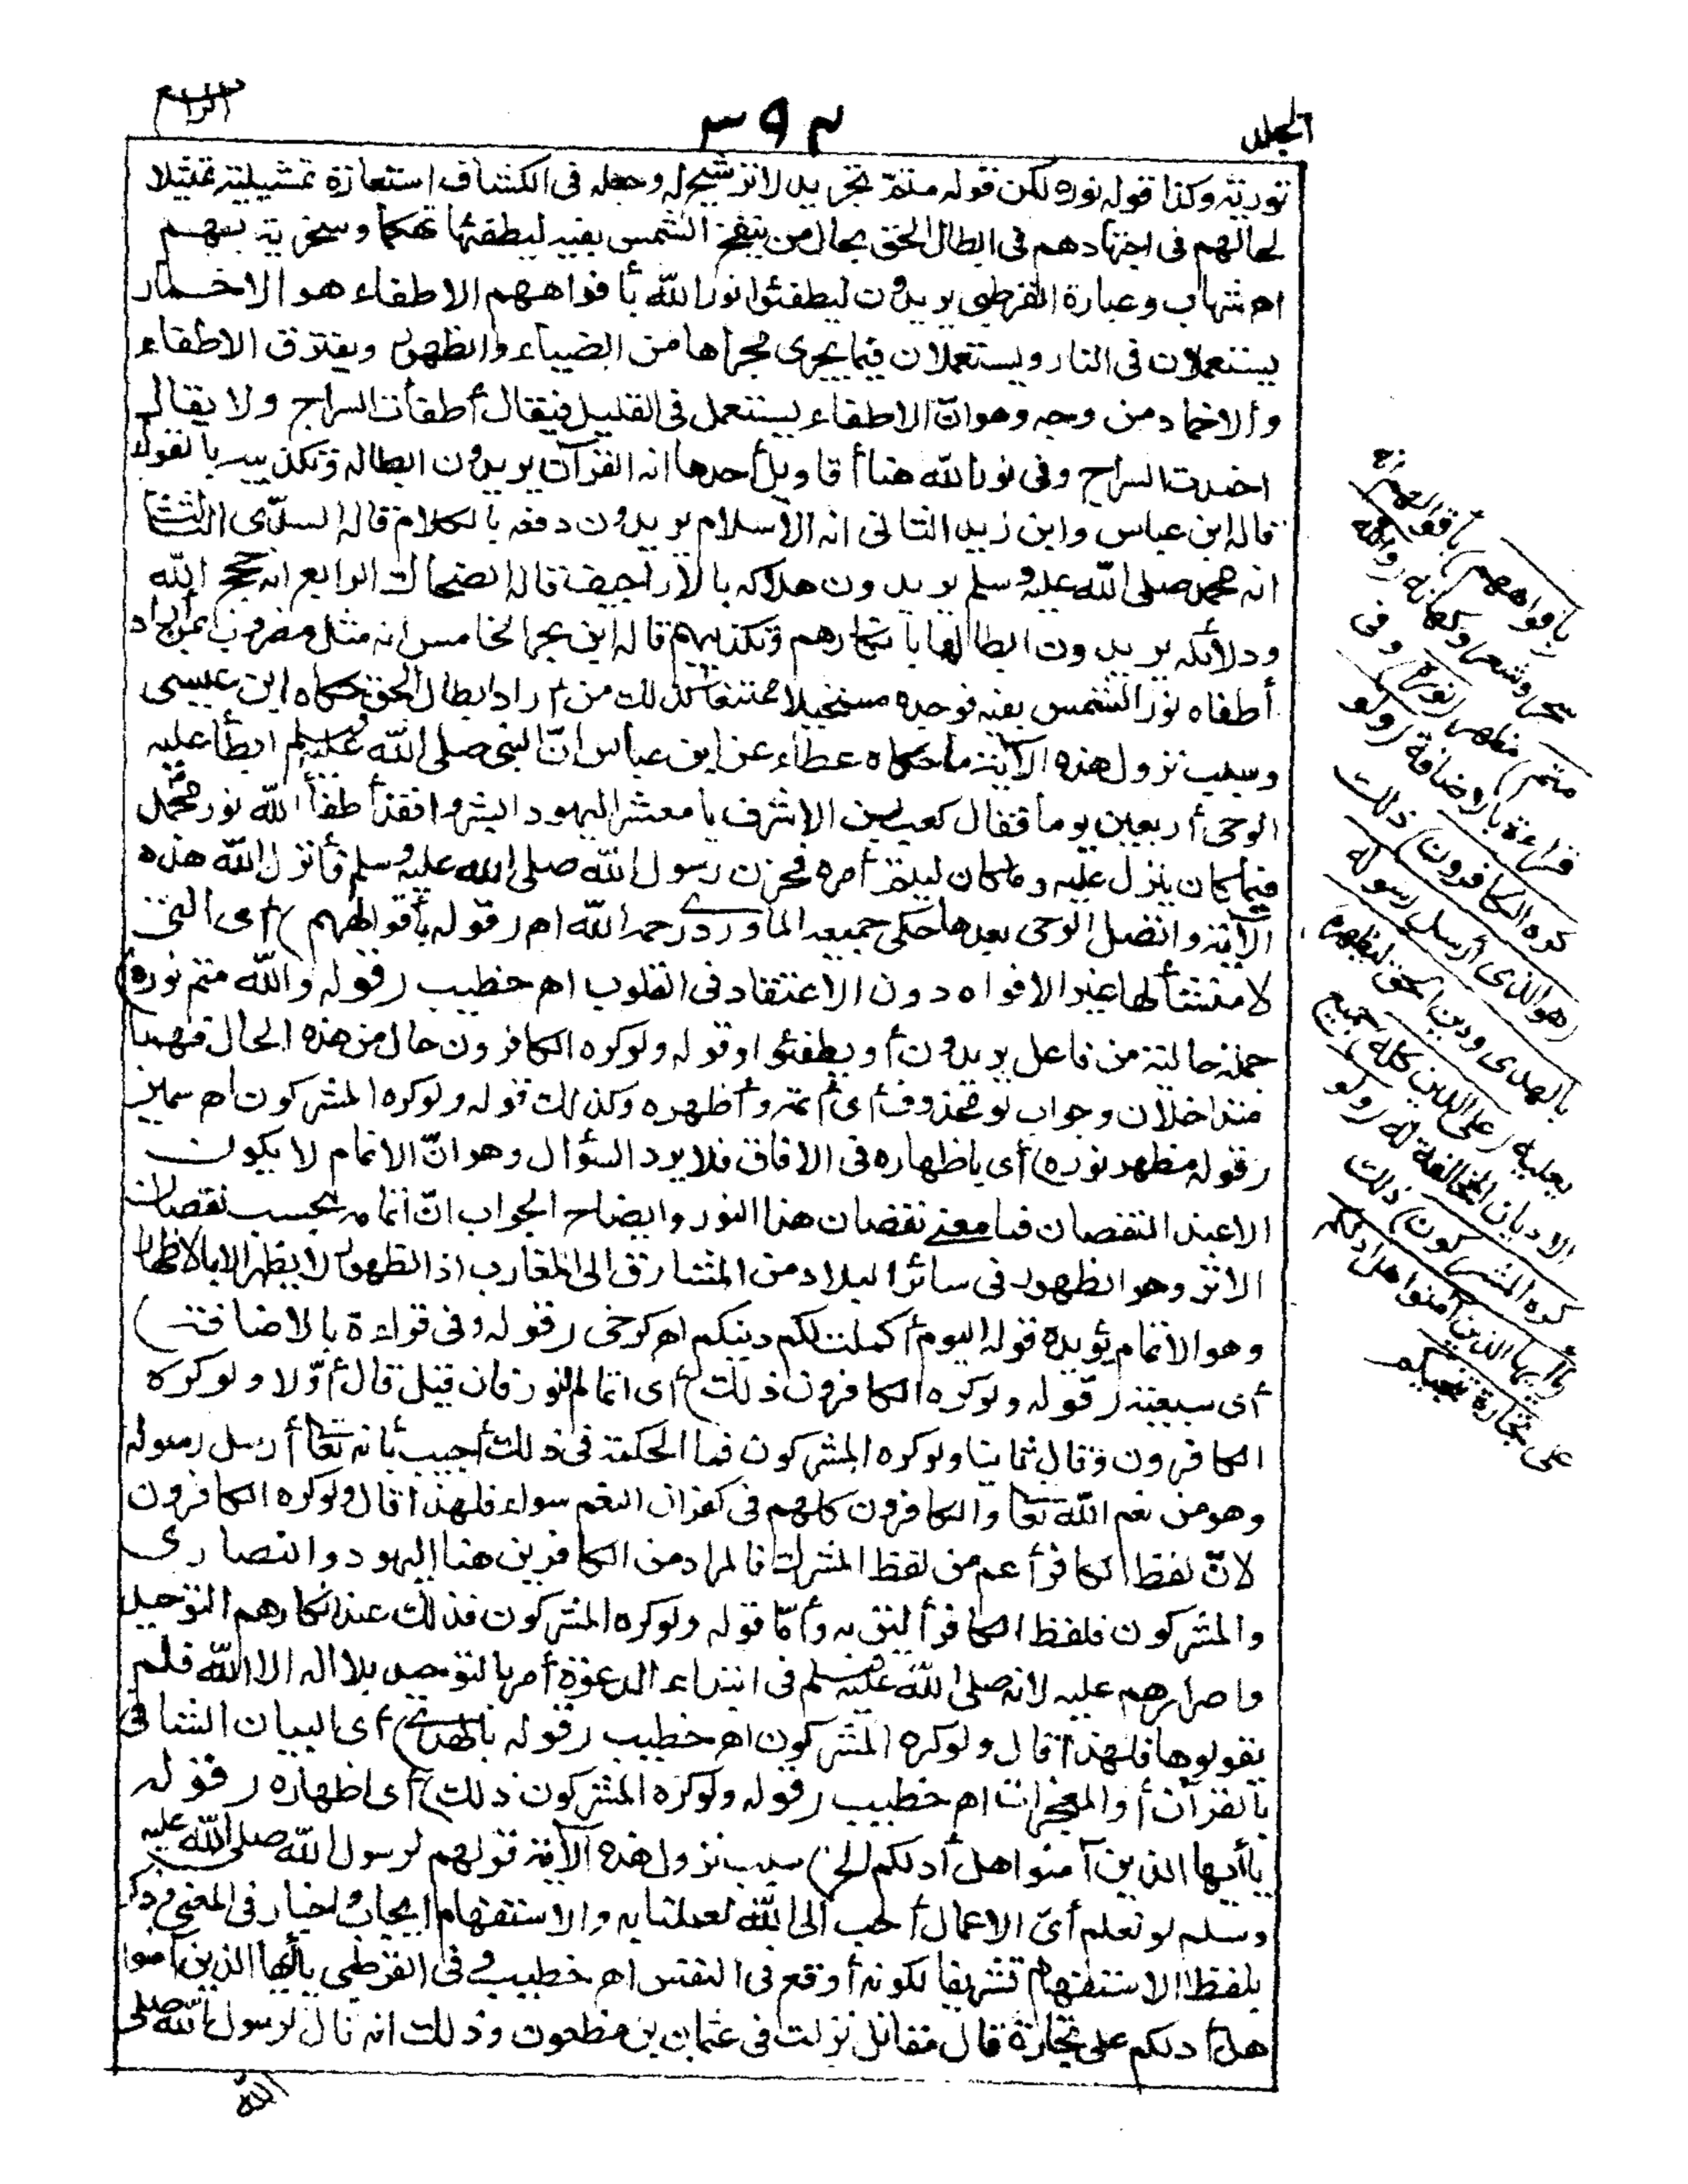 الجلد
٣٩٢
الرابع
تورية وكذا قوله نوره لكن قوله متمّ تجريد لا ترشيح له وجعله فى الكشاف استعارة تمثيلية تمثيلا
لحالهم فى اجتهادهم فى ابطال الحق بحال من ينفخ الشمس بفيه ليطفئها تهكما وسخرية بهم
اه شهاب وعبارة القرطبى يريدون ليطفئوا نور الله بأفواههم الاطفاء هو الاخماد
يستعملان فى النار ويستعملان فيما يجرى مجراها من الضياء والظهور ويفترق الاطفاء
والاخماد من وجه وهو انّ الاطفاء يستعمل فى القليل فيقال أطفأت السراج ولا يقال
اخمدت السراج وفى نور الله هنا أقاويل أحدها انه القرآن يريدون ابطاله وتكذيبه بالقول
قاله ابن عباس وابن زيد الثانى انه الاسلام يريدون دفعه بالكلام قاله السدّى الثالث
انه محمد صلى الله عليه وسلم يريدون هلاكه بالاراجيف قاله الضحاك الرابع انه حجج الله
ودلائله يريدون ابطالها بانكارهم وتكذيبهم قاله ابن بحر الخامس انه مثل مضروب لمن أراد
أطفاء نور الشمس بفيه فوجده مستحيلا ممتنعا كذلك من أراد ابطال الحق حكاه ابن عيسى
وسبب نزول هذه الآية ما حكاه عطاء عن ابن عباس انّ النبى صلى الله عليه وسلم ابطأ عليه
الوحى أربعين يوما فقال كعب بن الاشرف يا معشر اليهود ابشروا فقد أطفأ الله نور محمد
فيما كان ينزل عليه وما كان ليتمّ أمره فحزن رسول الله صلى الله عليه وسلم فأنزل الله هذه
الآية واتصل الوحى بعدها حكى جميعه الماوردى رحمه الله اه (قوله بأقوالهم) أى التى
لا منشأ لها غير الافواه دون الاعتقاد فى القلوب اه خطيب (قوله والله متم نوره)
جملة حالية من فاعل يريدون أو يطفئوا وقوله ولو كره الكافرون حال من هذه الحال فهما
متداخلان وجواب لو محذوف أى أتمه وأظهره وكذلك قوله ولو كره المشركون اه سمين
(قوله مظهر نوره) أى باظهاره فى الافاق فلا يرد السؤال وهو انّ الاتمام لا يكون
الا عند النقصان فما معنى نقصان هذا النور وايضاح الجواب انّ اتمامه بحسب نقصان
الاثر وهو الظهور فى سائر البلاد من المشارق الى المغارب اذ الظهور لا يظهر الا بالاظهار
وهو الاتمام يؤيده قوله اليوم أكملت لكم دينكم اه كرخى (قوله وفى قراءة بالاضافة)
أى سبعية (قوله ولو كره الكافرون ذلك) أى اتمام النور فان قيل قال أوّلا ولو كره
الكافرون وقال ثانيا ولو كره المشركون فما الحكمة فى ذلك أجيب بأنه تعالى أرسل رسوله
وهو من نعم الله تعالى والكافرون كلهم فى كفران النعم سواء فلهذا قال ولو كره الكافرون
لانّ لفظ الكافر أعم من لفظ المشرك فالمراد من الكافرين هنا اليهود والنصارى
والمشركون فلفظ الكافر أليق به وأمّا قوله ولو كره المشركون فذلك عند انكارهم التوحيد
واصرارهم عليه لانه صلى الله عليه وسلم فى ابتداء الدعوة أمر بالتوحيد بلا اله الا الله فلم
يقولوها فلهذا قال ولو كره المشركون اه خطيب (قوله بالهدى) أى البيان الشافى
بالقرآن أو المعجزات اه خطيب (قوله ولو كره المشركون ذلك) أى اظهاره (قوله
يا أيها الذين آمنوا هل أدلكم الخ) سبب نزول هذه الآية قولهم لرسول الله صلى الله عليه
وسلم لو نعلم أىّ الاعمال أحب الى الله لعملنا به والاستفهام ايجاب واخبار فى المعنى وذكر
بلفظ الاستفهام تشريفا لكونه أوقع فى النفس اه خطيب وفى القرطبى يا أيها الذين آمنوا
هل أدلكم على تجارة قال مقاتل نزلت فى عثمان بن مظعون وذلك انه قال لرسول الله صلى
الله
بافواههم) بأقوالهم انه
سحر وشعر وكهانة (والله
متم) مظهر (نوره) وفى
قراءة بالاضافة (ولو
كره الكافرون) ذلك
(هو الذى أرسل رسوله
بالهدى ودين الحق ليظهره)
يعليه (على الدين كله) جميع
الاديان المخالفة له (ولو
كره المشركون) ذلك
(يا أيها الذين آمنوا هل أدلكم
على تجارة تنجيكم